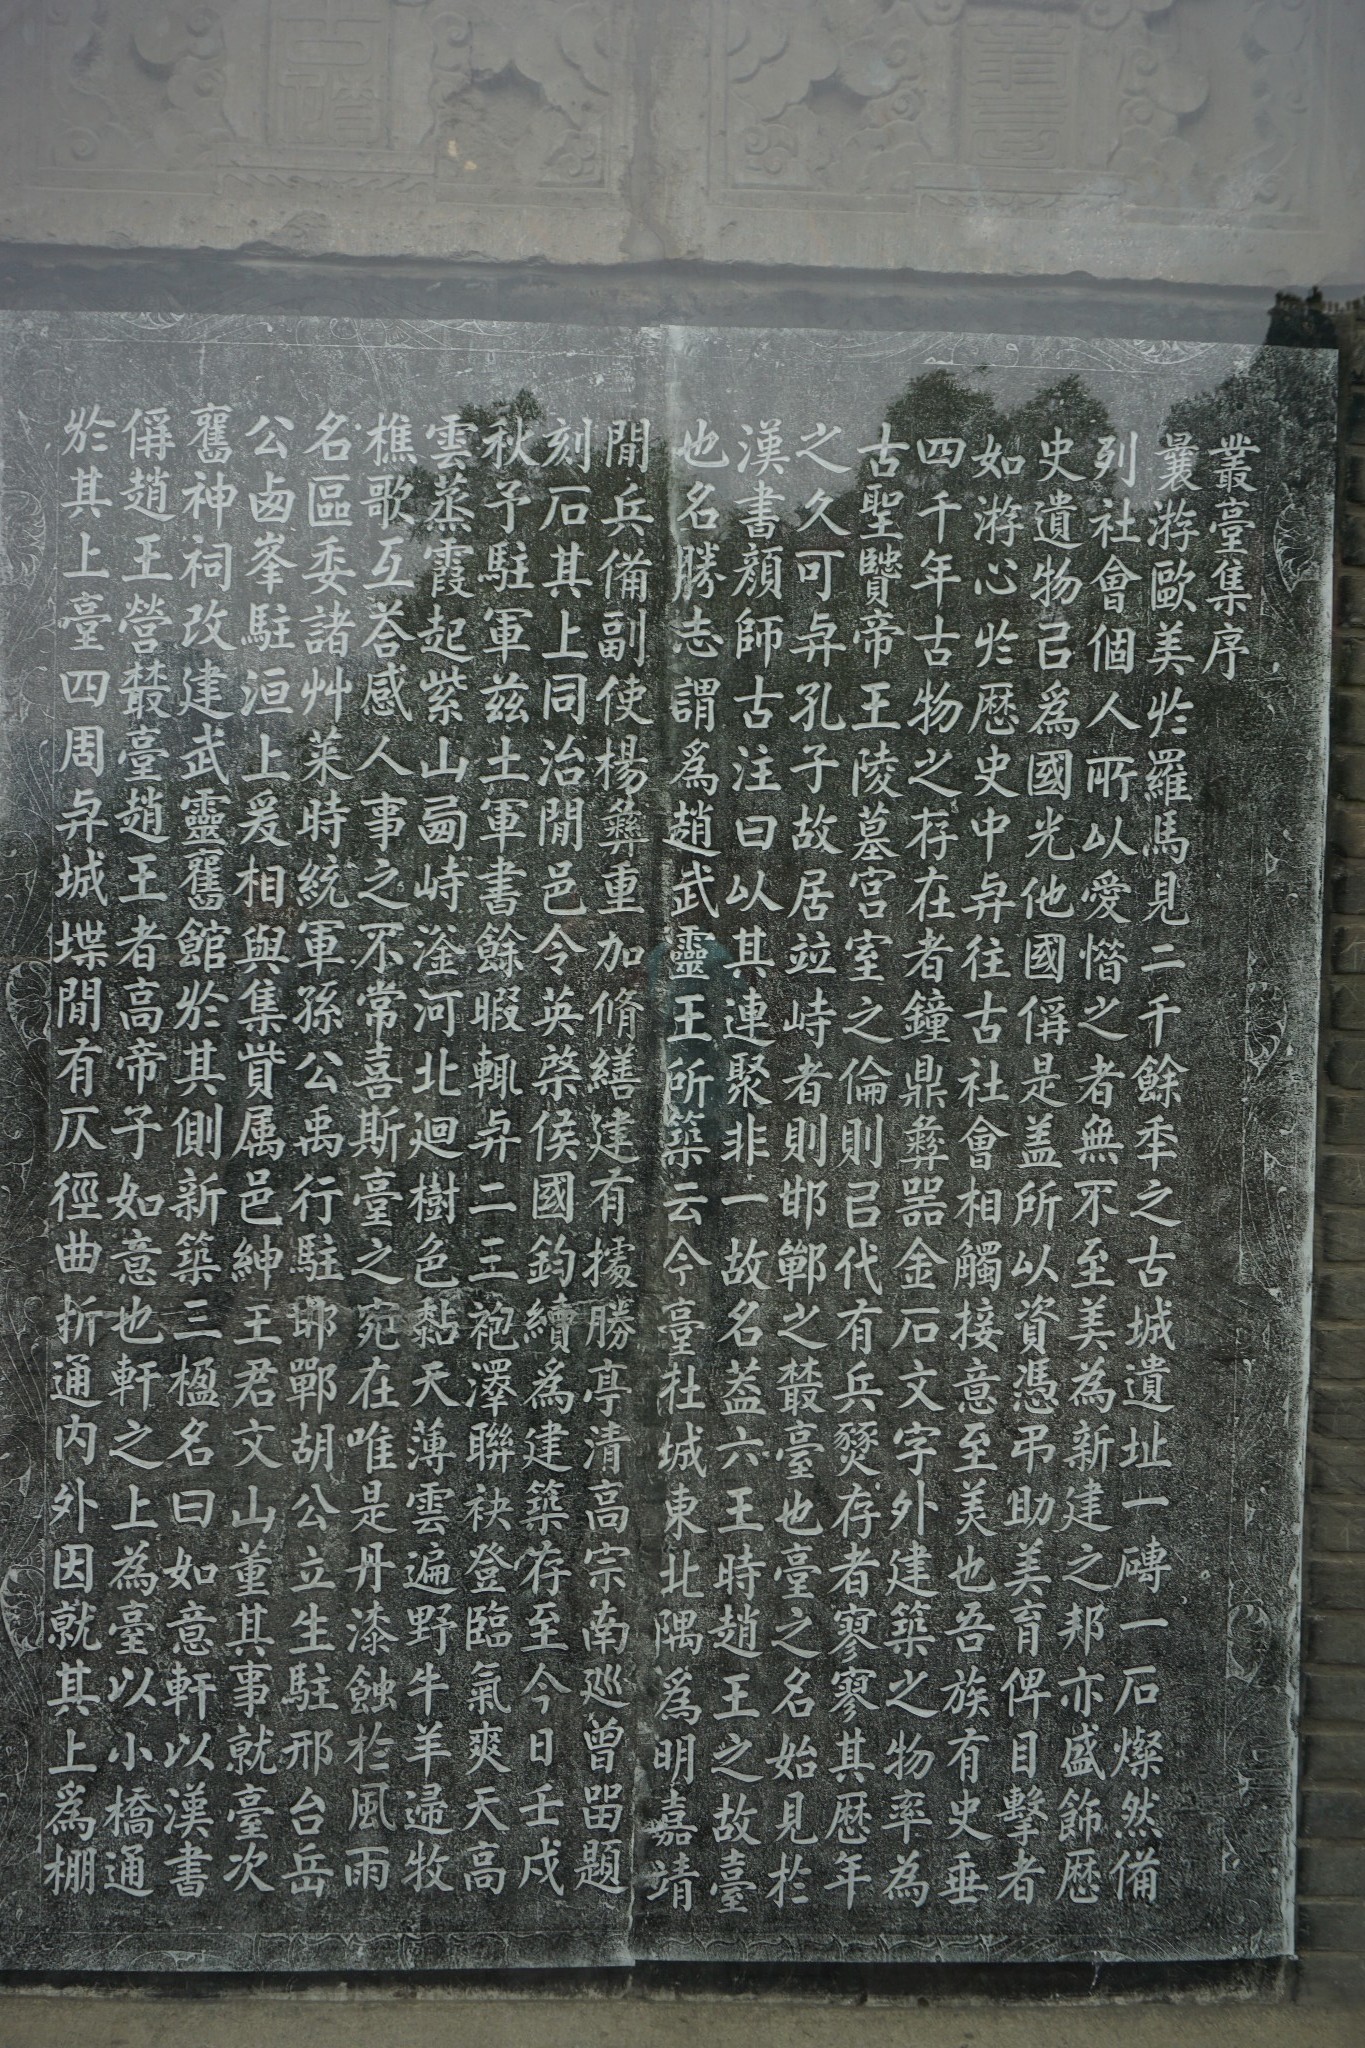 叢臺集序
曩游歐美於羅馬見二千餘年之古城遺址一磚一石燦然備
列社會個人所以愛惜之者無不至美為新建之邦亦盛飾歷
史遺物已為國光他國偁是盖所以資憑弔助美育俾目擊者
如游心於歷史中与往古社會相觸接意至美也吾族有史垂
四千年古物之存在者鐘鼎彝器金石文字外建築之物率為
古聖贒帝王陵墓宮室之倫則已代有兵燹存者寥寥其歷年
之久可与孔子故居竝峙者則邯鄲之叢臺也臺之名始見於
漢書顏師古注曰以其連聚非一故名蓋六王時趙王之故臺
也名勝志謂爲趙武靈王所築云今臺在城東北隅爲明嘉靖
間兵備副使楊彝重加脩繕建有據勝亭清高宗南巡曾留題
刻石其上同治間邑令英棨侯國鈞續爲建築存至今日壬戌
秋予駐軍兹土軍書餘暇輒与二三袍澤聯袂登臨氣爽天高
雲蒸霞起紫山西峙滏河北迴樹色黏天薄雲遍野牛羊歸牧
樵歌互荅感人事之不常喜斯臺之宛在唯是丹漆蝕於風雨
名區委諸艸萊時統軍孫公禹行駐邯鄲胡公立生駐邢台岳
公西峯駐洹上爰相與集貲属邑紳王君文山董其事就臺次
舊神祠改建武靈舊館於其側新築三楹名曰如意軒以漢書
偁趙王營叢臺趙王者高帝子如意也軒之上為臺以小橋通
於其上臺四周与城堞間有仄徑曲折通内外因就其上爲棚